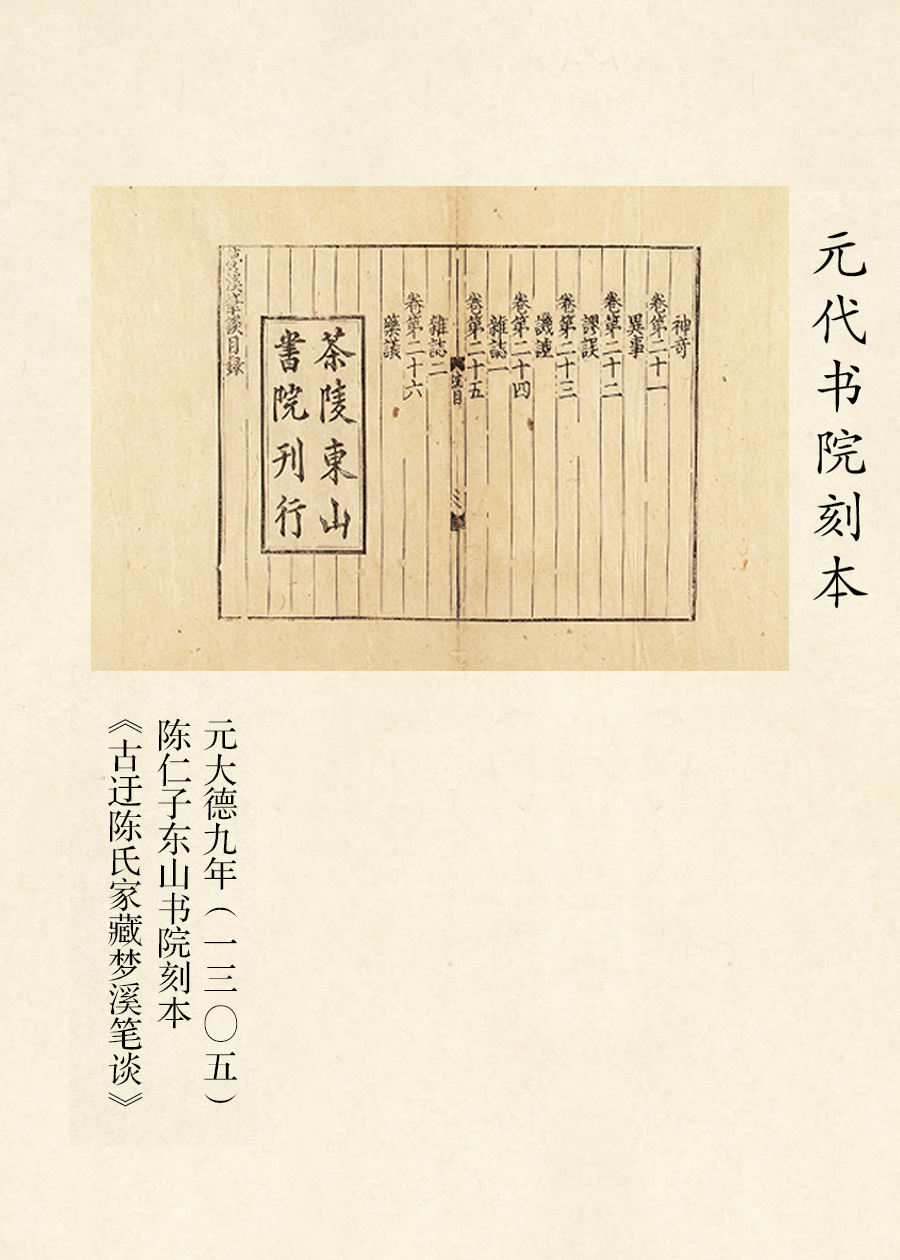 元代书院刻本
神奇
卷第二十一
異事
卷第二十二
謬誤
卷第二十三
譏謔
卷第二十四
雜誌一
卷第二十五
雜誌二
卷第二十六
藥議
茶陵東山
書院刊行
夢溪筆談目録
元大德九年（一三〇五）
陈仁子东山书院刻本
《古迂陈氏家藏梦溪笔谈》